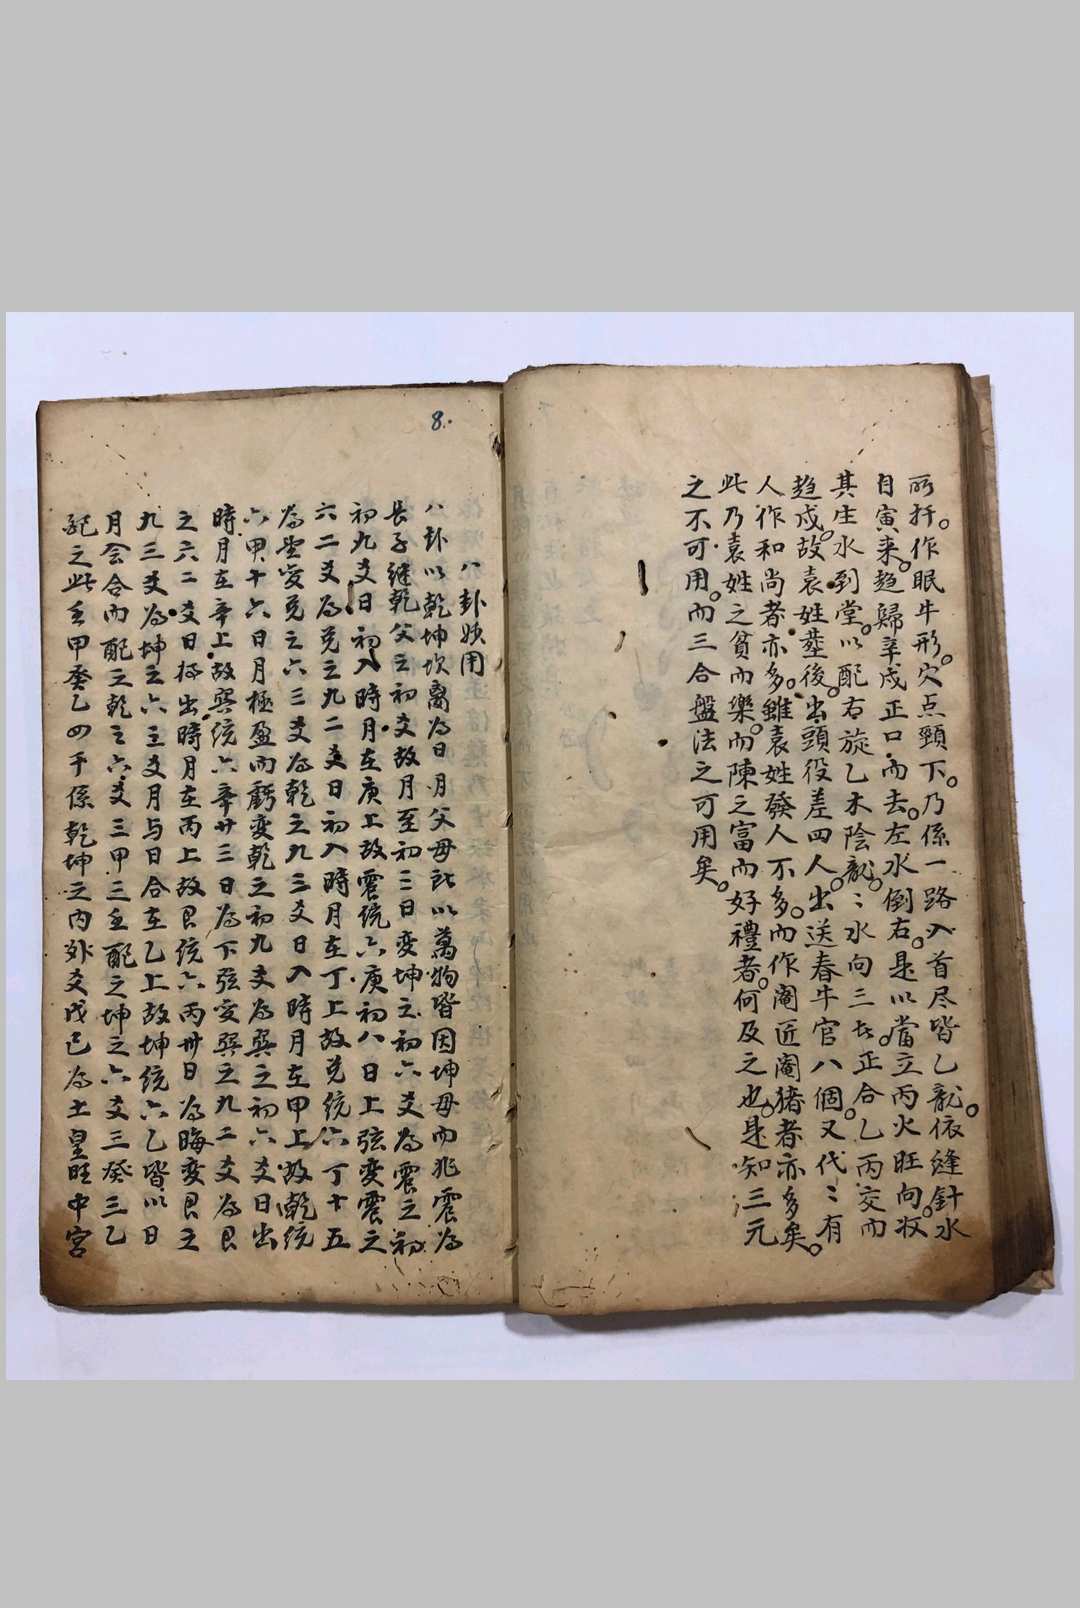 所扦。作眠牛形。穴点頸下。乃係一路入首尽皆乙龍。依縫針水
自寅来。趋歸辛戍正口而去。左水倒右。是以當立丙火旺向。收
其生水到堂。以配右旋乙木陰龍。〻水向三𠀍。正合乙丙交而
趋戍。故袁姓塟後。出頭役差四人。出送春牛官八個。又代〻有
人作和尚者亦多。雖袁姓發人不多。而作阉匠阉猪者亦多矣。
此乃袁姓之貧而樂。而陳之富而好禮者。何及之也。是知三元
之不可用。而三合盤法之可用矣。
8.
八卦妙用
八卦以乾坤坎离為日月父母訛以萬物皆因坤母而兆震為
長子継乾父之初爻故月至初三日变坤之初六爻為震之初
初九爻日初入時月在庚上故震统六庚初八日上弦变震之
六二爻為兑之九二爻日初入時月在丁上故兑统六丁十五
為望变兑之六三爻為乾之九三爻日入時月在甲上故乾统
六甲十六日月極盈而虧变乾之初九爻為巽之初六爻日出
時月在辛上故巽统六辛廿三日為下弦变巽之九二爻為艮
之六二爻日将出時月在丙上故艮统六丙卅日為晦变艮之
九三爻為坤之六三爻月与日合在乙上故坤统六乙皆以日
月会合而配之乾之六爻三甲三壬配之坤之六爻三癸三乙
配之此壬甲癸乙四干係乾坤之内外爻戊己為土皇旺中宫